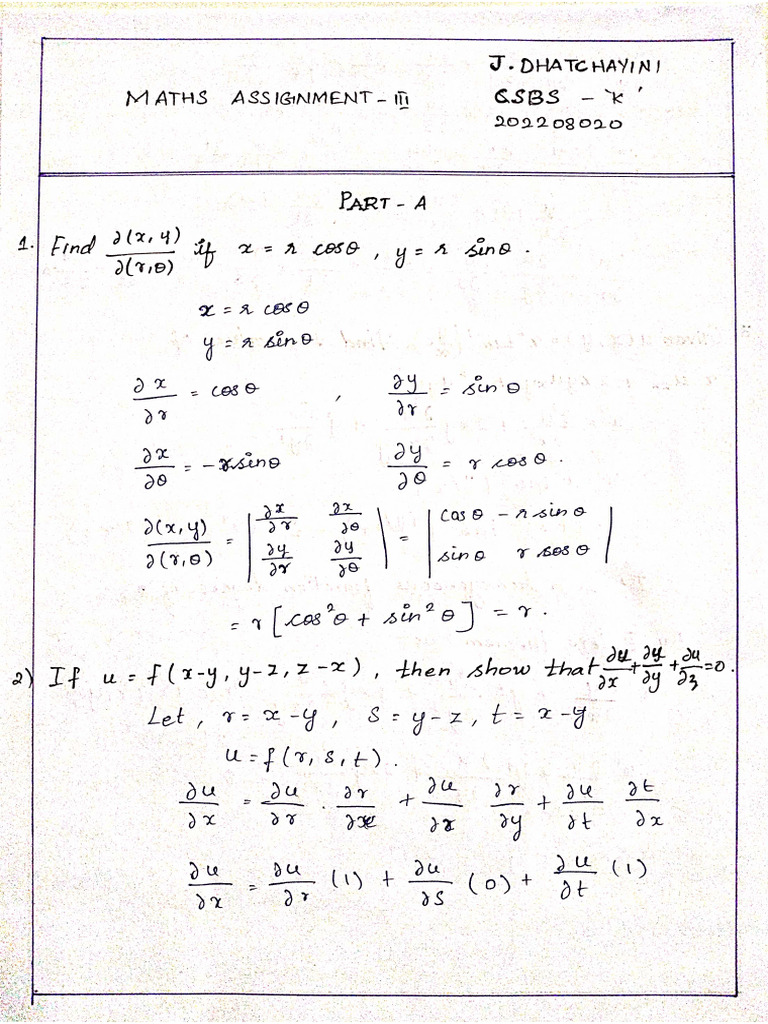 J. DHATCHAYINI
MATHS ASSIGNMENT - III CSBS - 'K'
202208020
PART - A
1. Find ∂(x, y)/∂(r, θ) if x = r cosθ, y = r sinθ.
x = r cosθ
y = r sinθ
∂x/∂r = cosθ , ∂y/∂r = sinθ
∂x/∂θ = -rsinθ ∂y/∂θ = r cosθ.
∂(x, y)/∂(r, θ) = | ∂x/∂r ∂x/∂θ ; ∂y/∂r ∂y/∂θ | = | cosθ - r sinθ ; sinθ r sosθ |
= r [cos²θ + sin²θ] = r.
2) If u = f(x-y, y-z, z-x), then show that ∂u/∂x + ∂y/∂y + ∂u/∂z = 0.
Let, r = x - y, s = y - z, t = x - y
u = f(r, s, t).
∂u/∂x = ∂u/∂r . ∂r/∂x + ∂u/∂r ∂r/∂y + ∂u/∂t ∂t/∂x
∂u/∂x = ∂u/∂r (1) + ∂u/∂s (0) + ∂u/∂t (1)